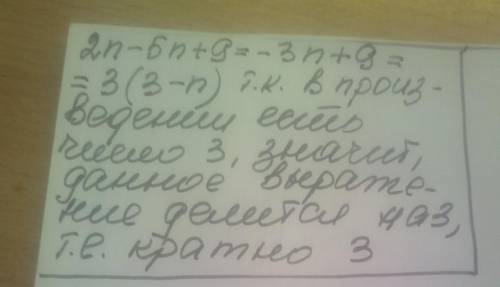 2n-5n+9=-3n+9=
=3(3-n) т.к. в произ-
ведении есть
число 3, значит,
данное выраже-
ние делится на 3,
т.е. кратно 3